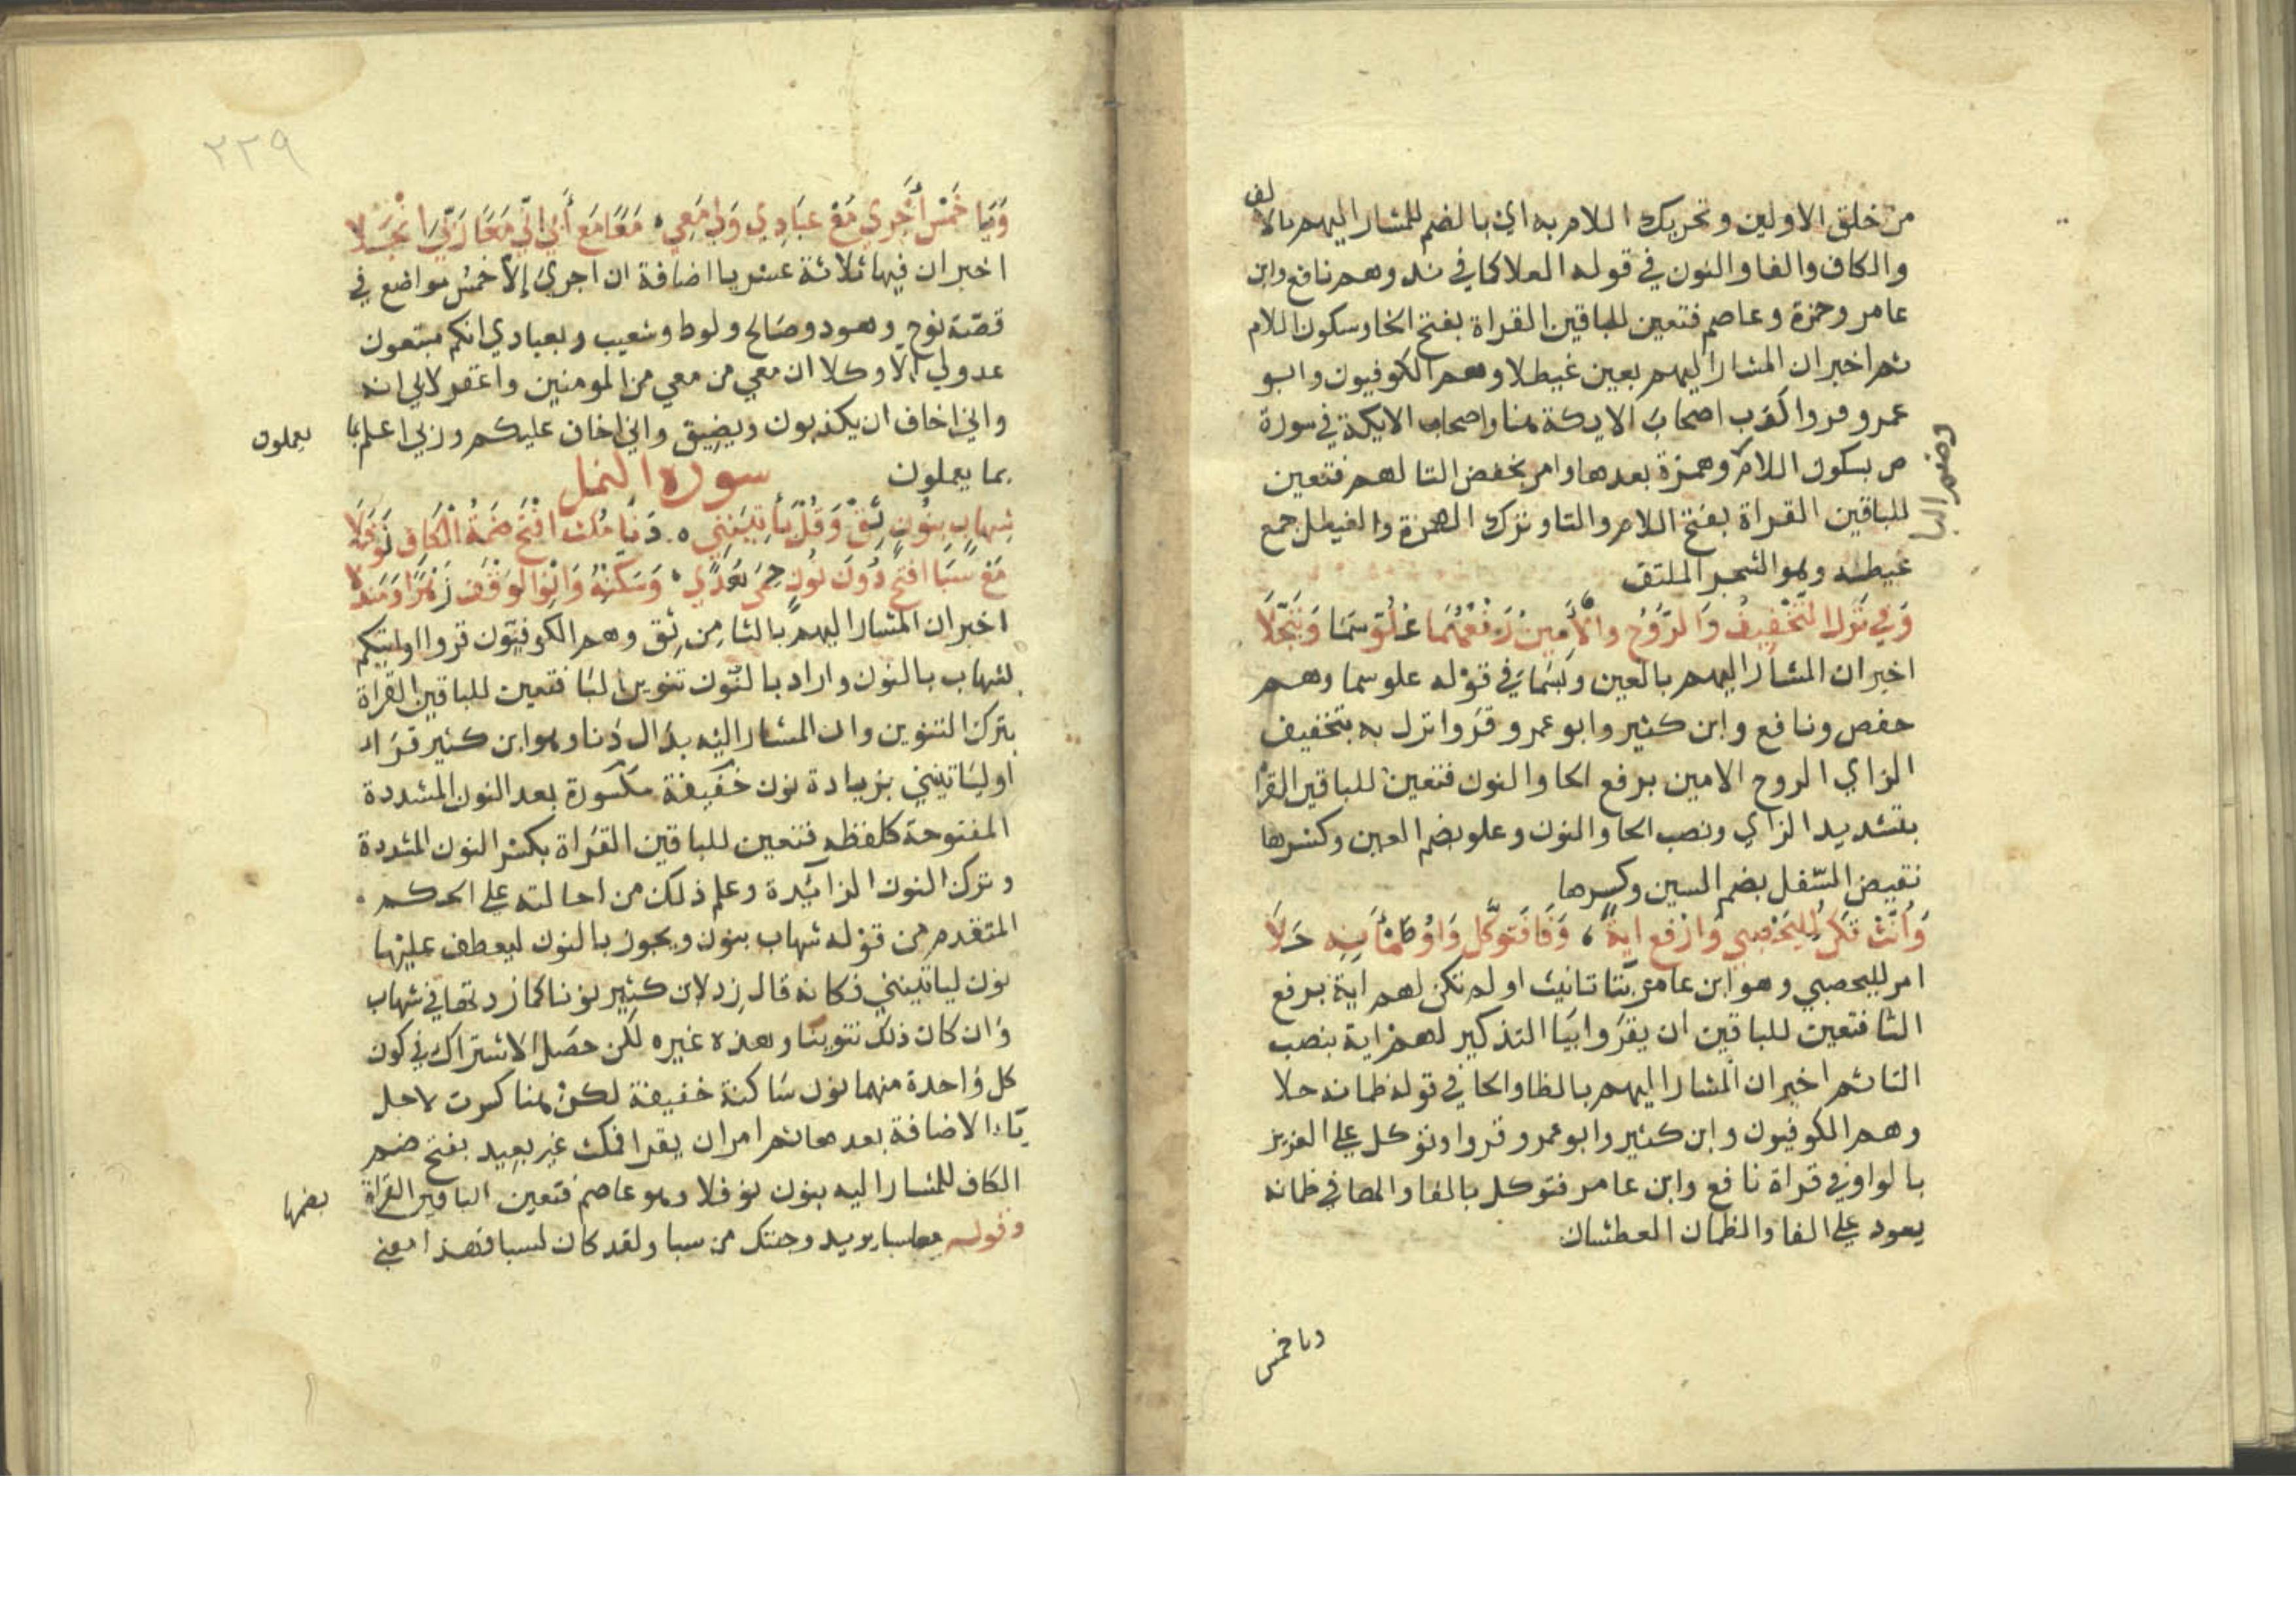 من خلق الاولين وتحريك اللام به اي بالضم للمشار اليهم بالالف
والكاف والفا والنون في قوله العلا كما في ند وهم نافع وابن
عامر وحمزة وعاصم فتعين للباقين القراة بفتح الخا وسكون اللام
ثم اخبر ان المشار اليهم بعين غيطلا وهم الكوفيون وابو
عمرو قروا كذب اصحاب الايكة هنا واصحاب الايكة في سورة
ص بسكون اللام وهمزة بعدها وامر بخفض التا لهم فتعين
للباقين القراة بفتح اللام والتا وترك الهمزة والغيطل جمع
غيطله وهو الشجر الملتف
وَفي نَزَلَ التَّخْفِيفُ وَالرُّوحُ والأَمِينُ رَفْعُهُمَا عُلُوّ سَمَا وَتَبَجَّلَا
اخبر ان المشار اليهم بالعين وبسَمَا في قوله علو سما وهم
حفص ونافع وابن كثير وابو عمرو قروا نزل به بتخفيف
الزاي الروح الامين برفع الحا والنون فتعين للباقين القرا
بتشديد الزاي ونصب الحا والنون وعلو بضم العين وكسرها
نقيض السفل بضم السين وكسرها
وَأَنِّثْ تَكُنْ لِلْيَحْصِبِي وَارْفَعِ ايَةً، وَفَا فَتَوَكَّلْ وَاوُ ظَمْأَنِهِ حَلَا
امر لليحصبي وهو ابن عامر بتا تانيث اولم تكن لهم اية برفع
التا فتعين للباقين ان يقروا بيا التذكير لهم اية بنصب
التا ثم اخبر ان المشار اليهم بالظا والحا في قوله ظمانه حلا
وهم الكوفيون وابن كثير وابو عمرو قروا وتوكل على العزيز
بالواو وفي قراة نافع وابن عامر فتوكل بالفا والها في ظمانه
يعود على الفا والظمان العطشان
وضم البا
ويا خمس
٢٢٩
وَيَا خَمْسِ أَجْرِي مَعْ عِبَادِي وَلِي مَعِي، مَعًا مَعْ أَبِي إِنِّي مَعًا رَبِّيَ انْجَلَا
اخبر ان فيها ثلاثة عشر يا اضافة ان اجري إلا خمس مواضع في
قصّة نوح وهود وصالح ولوط وشعيب وبعبادي انكم متبعون
عدو لي الا وكلا ان معي من معي من المومنين واغفر لابي انه
واني اخاف ان يكذبون ويضيق واني اخاف عليكم وربي اعلم بما
يعملون
بما يعملون سورة النمل
شِهَابٍ بِنُونٍ ثِقْ وَقُلْ يَأْتِيَنَّنِي ه دَنَا مَكُثَ افْتَحْ ضَمَّةَ الْكَافِ نَوْفَلَا
مَعًا سَبَأَ افْتَحْ دُونَ نُونٍ حِمَى هُدًى، وَسَكِّنْهُ وَانْوِ الْوَقْفَ زُهْرًا وَمَنْدَلَا
اخبر ان المشار اليهم بالثا مِن ثِق وهم الكوفيّون قروا او اتيكم
بشهاب بالنون واراد بالنّون تنوين البا فتعين للباقين القراة
بترك التنوين وان المشار اليه بدال دنا وهو ابن كثير قرا
اوليَاتينني بزيادة نون خفيفة مكسورة بعد النون المشددة
المفتوحة كلفظه فتعين للباقين القراة بكسر النون المشددة
وترك النون الزائدة وعلم ذلك من احالته على الحكم
المتقدم من قوله شهاب بنون ويجوز بالنون ليعطف عليها
نون لياتينني فكانه قال زد لابن كثير نونا كما زدتها في شهاب
وان كان ذلك تنوينا وهذه غيره لكن حصَل الاشتراك في كون
كل واحدة منهما نون سَاكنة خفيفة لكن هنا كسرت لاجل
يَاء الاضافة بعدها ثم امر ان يقرا فمكث غير بعيد بفتح ضم
الكاف للمشار اليه بنون نوفلا وهو عاصم فتعين الباقين القراة
بضمها
وقوله معا سبا يريد وجئتك من سبا ولقد كان لسبا فهذا معني